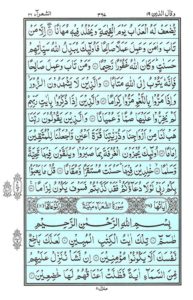 وقال الذين ١٩ الشعرآء ٢٦
يُّضٰعَفْ لَهُ الْعَذَابُ يَوْمَ الْقِيٰمَةِ وَيَخْلُدْ فِيْهٖ مُهَانًا اِلَّا مَنْ
تَابَ وَاٰمَنَ وَعَمِلَ عَمَلًا صَالِحًا فَاُولٰٓئِكَ يُبَدِّلُ اللّٰهُ سَيِّاٰتِهِمْ
حَسَنٰتٍ وَكَانَ اللّٰهُ غَفُوْرًا رَّحِيْمًا وَمَنْ تَابَ وَعَمِلَ صَالِحًا
فَاِنَّهٗ يَتُوْبُ اِلَى اللّٰهِ مَتَابًا وَالَّذِيْنَ لَا يَشْهَدُوْنَ الزُّوْرَ
وَاِذَا مَرُّوْا بِاللَّغْوِ مَرُّوْا كِرَامًا وَالَّذِيْنَ اِذَا ذُكِّرُوْا بِاٰيٰتِ رَبِّهِمْ
لَمْ يَخِرُّوْا عَلَيْهَا صُمًّا وَّعُمْيَانًا وَالَّذِيْنَ يَقُوْلُوْنَ رَبَّنَا
هَبْ لَنَا مِنْ اَزْوَاجِنَا وَذُرِّيّٰتِنَا قُرَّةَ اَعْيُنٍ وَّاجْعَلْنَا لِلْمُتَّقِيْنَ
اِمَامًا اُولٰٓئِكَ يُجْزَوْنَ الْغُرْفَةَ بِمَا صَبَرُوْا وَيُلَقَّوْنَ فِيْهَا تَحِيَّةً
وَّسَلٰمًا خٰلِدِيْنَ فِيْهَا حَسُنَتْ مُسْتَقَرًّا وَّمُقَامًا قُلْ مَا
يَعْبَؤُا بِكُمْ رَبِّيْ لَوْلَا دُعَآؤُكُمْ فَقَدْ كَذَّبْتُمْ فَسَوْفَ يَكُوْنُ لِزَامًا
سُوْرَةُ الشُّعَرَآءِ مَكِّيَّةٌ
بِسْمِ اللّٰهِ الرَّحْمٰنِ الرَّحِيْمِ
طٰسٓمّٓ تِلْكَ اٰيٰتُ الْكِتٰبِ الْمُبِيْنِ لَعَلَّكَ بَاخِعٌ
نَّفْسَكَ اَلَّا يَكُوْنُوْا مُؤْمِنِيْنَ اِنْ نَّشَاْ نُنَزِّلْ عَلَيْهِمْ
مِّنَ السَّمَآءِ اٰيَةً فَظَلَّتْ اَعْنَاقُهُمْ لَهَا خٰضِعِيْنَ